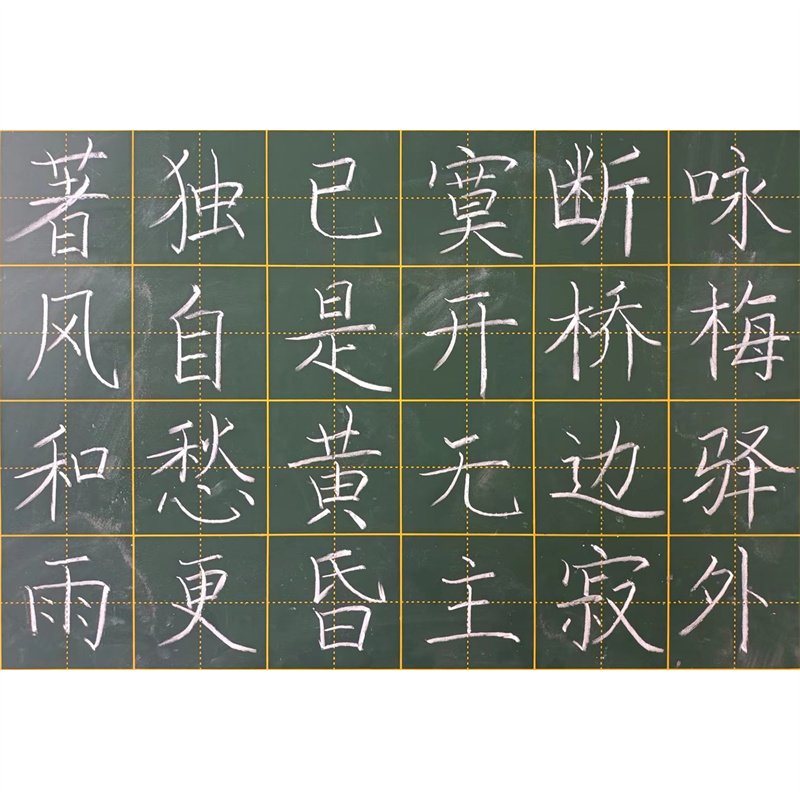 咏梅驿外
断桥边寂
寞开无主
已是黄昏
独自愁更
著风和雨